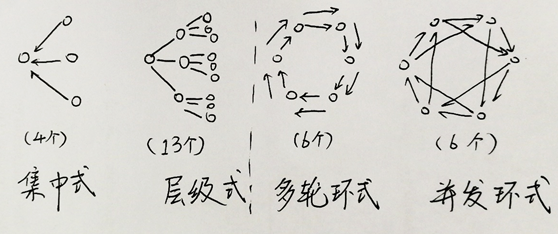 (4个) (13个) (6个) (6个)
集中式 层级式 多轮环式 并发环式